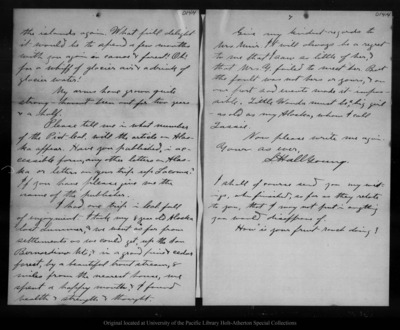 the islands again. What full delight
it would be to spend a few months
with you again in canoe & forest! Oh!
for a whiff of glacier air & a drink of
glacier water!
My arms have grown quite
strong - haven't been out for two years
& a half.
Please tell me in what number
of the Pict. Cal. will the article on Alas-
ka appear. Have you published, in ac-
cessible form, any other letters on Alas-
ka or letters on your trip up Tacoma?
If you have please give me the
name of the publisher.
I had one trip in last full
of enjoyment. I took my 8 year old Alaska
last summer, & we went as far from
settlements as we could get, up the San
Bernardino Mts., in a grand pine & cedar
forest, by a beautiful trout stream, 8
miles from the nearest house, we
spent a happy month, & I found
health & strength & thought.
2
Give my kindest regards to
Mrs. Muir. It will always be a regret
to me that I saw so little of her, &
that Mrs. Y. failed to meet her. But
the fault was not hers or yours, &
our visit made it impos-
sible. Little Wanda must be a big girl
- as old as my Alaska, whom I call
Lassie.
Now please write me again
Yours as ever,
S. Hall Young.
I shall of course send you my writ-
ings, when finished, as far as they relate
to you, that I may not put in anything
you would disapprove of.
How is your fruit ranch doing?
Original located at University of the Pacific Library Holt-Atherton Special Collections